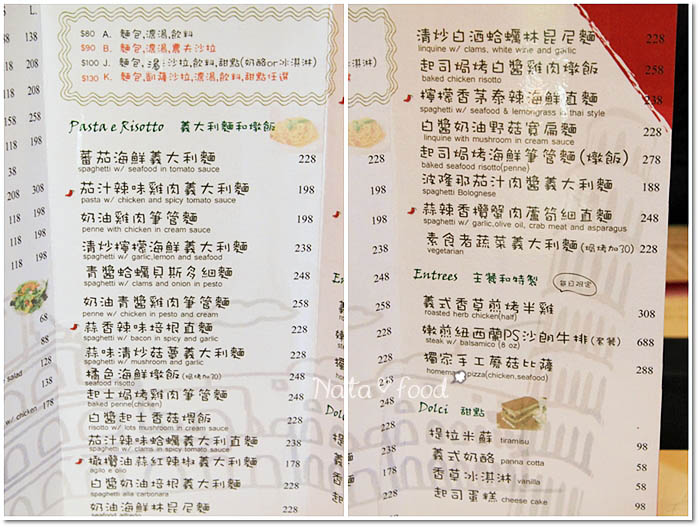 $80 A. 麵包,濃湯,飲料
$90 B. 麵包,濃湯,農夫沙拉
$100 J. 麵包,湯,沙拉,飲料,甜點(奶酪or冰淇淋)
$130 K. 麵包,凱薩沙拉,濃湯,飲料,甜點任選
Pasta e Risotto 義大利麵和燉飯
蕃茄海鮮義大利麵 228
spaghetti w/ seafood in tomato sauce
茄汁辣味雞肉義大利麵 198
pasta w/ chicken and spicy tomato sauce
奶油雞肉筆管麵 198
penne with chicken in cream sauce
清炒檸檬海鮮義大利麵 238
spaghetti w/ garlic,lemon and seafood
青醬蛤蠣貝斯多細麵 248
spaghetti w/ clams and onion in pesto
奶油青醬雞肉筆管麵 248
penne w/ chicken in pesto and cream
蒜香辣味培根直麵 228
spaghetti w/ bacon in spicy and garlic
蒜味清炒菇蕈義大利麵 228
spaghetti w/ mushroom and garlic
橘色海鮮燉飯(焗烤加30) 228
seafood risotto
起士焗烤雞肉筆管麵 228
baked penne(chicken)
白醬起士香菇煨飯 228
risotto w/ lots mushroom in cream sauce
茄汁辣味蛤蠣義大利直麵 238
spaghetti w/ clams in spicy tomato sauce
橄欖油蒜紅辣椒義大利麵 178
aglio e olio
白醬奶油培根義大利麵 228
spaghetti alla carbonara
奶油海鮮林昆尼麵 228
清炒白酒蛤蠣林昆尼麵 228
linquine w/ clams, white wine and garlic
起司焗烤白醬雞肉燉飯 258
baked chicken risotto
檸檬香茅泰辣海鮮直麵 258
spaghetti w/ seafood & lemongrass in thai style
白醬奶油野菇寬扁麵 228
linguine with mushroom in cream sauce
起司焗烤海鮮筆管麵(燉飯) 278
baked seafood risotto(penne)
波隆那茄汁肉醬義大利麵 188
spaghetti Bolognese
蒜辣香欖蟹肉蘆筍細直麵 248
spaghetti w/ garlic,olive oil, crab meat and asparagus
素食者蔬菜義大利麵(焗烤加30) 228
vegetarian
Entrees 主餐和特製
每日限定
義式香草煎烤半雞 308
roasted herb chicken(half)
嫩煎紐西蘭PS沙朗牛排(套餐) 688
steak w/ balsamico (8 oz)
獨家手工蘑菇比薩 288
homemade pizza(chicken,seafood)
Dolci 甜點
提拉米蘇 tiramisu 98
義式奶酪 panna cotta 58
香草冰淇淋 vanilla 58
起司蛋糕 cheese cake 98
Nata food